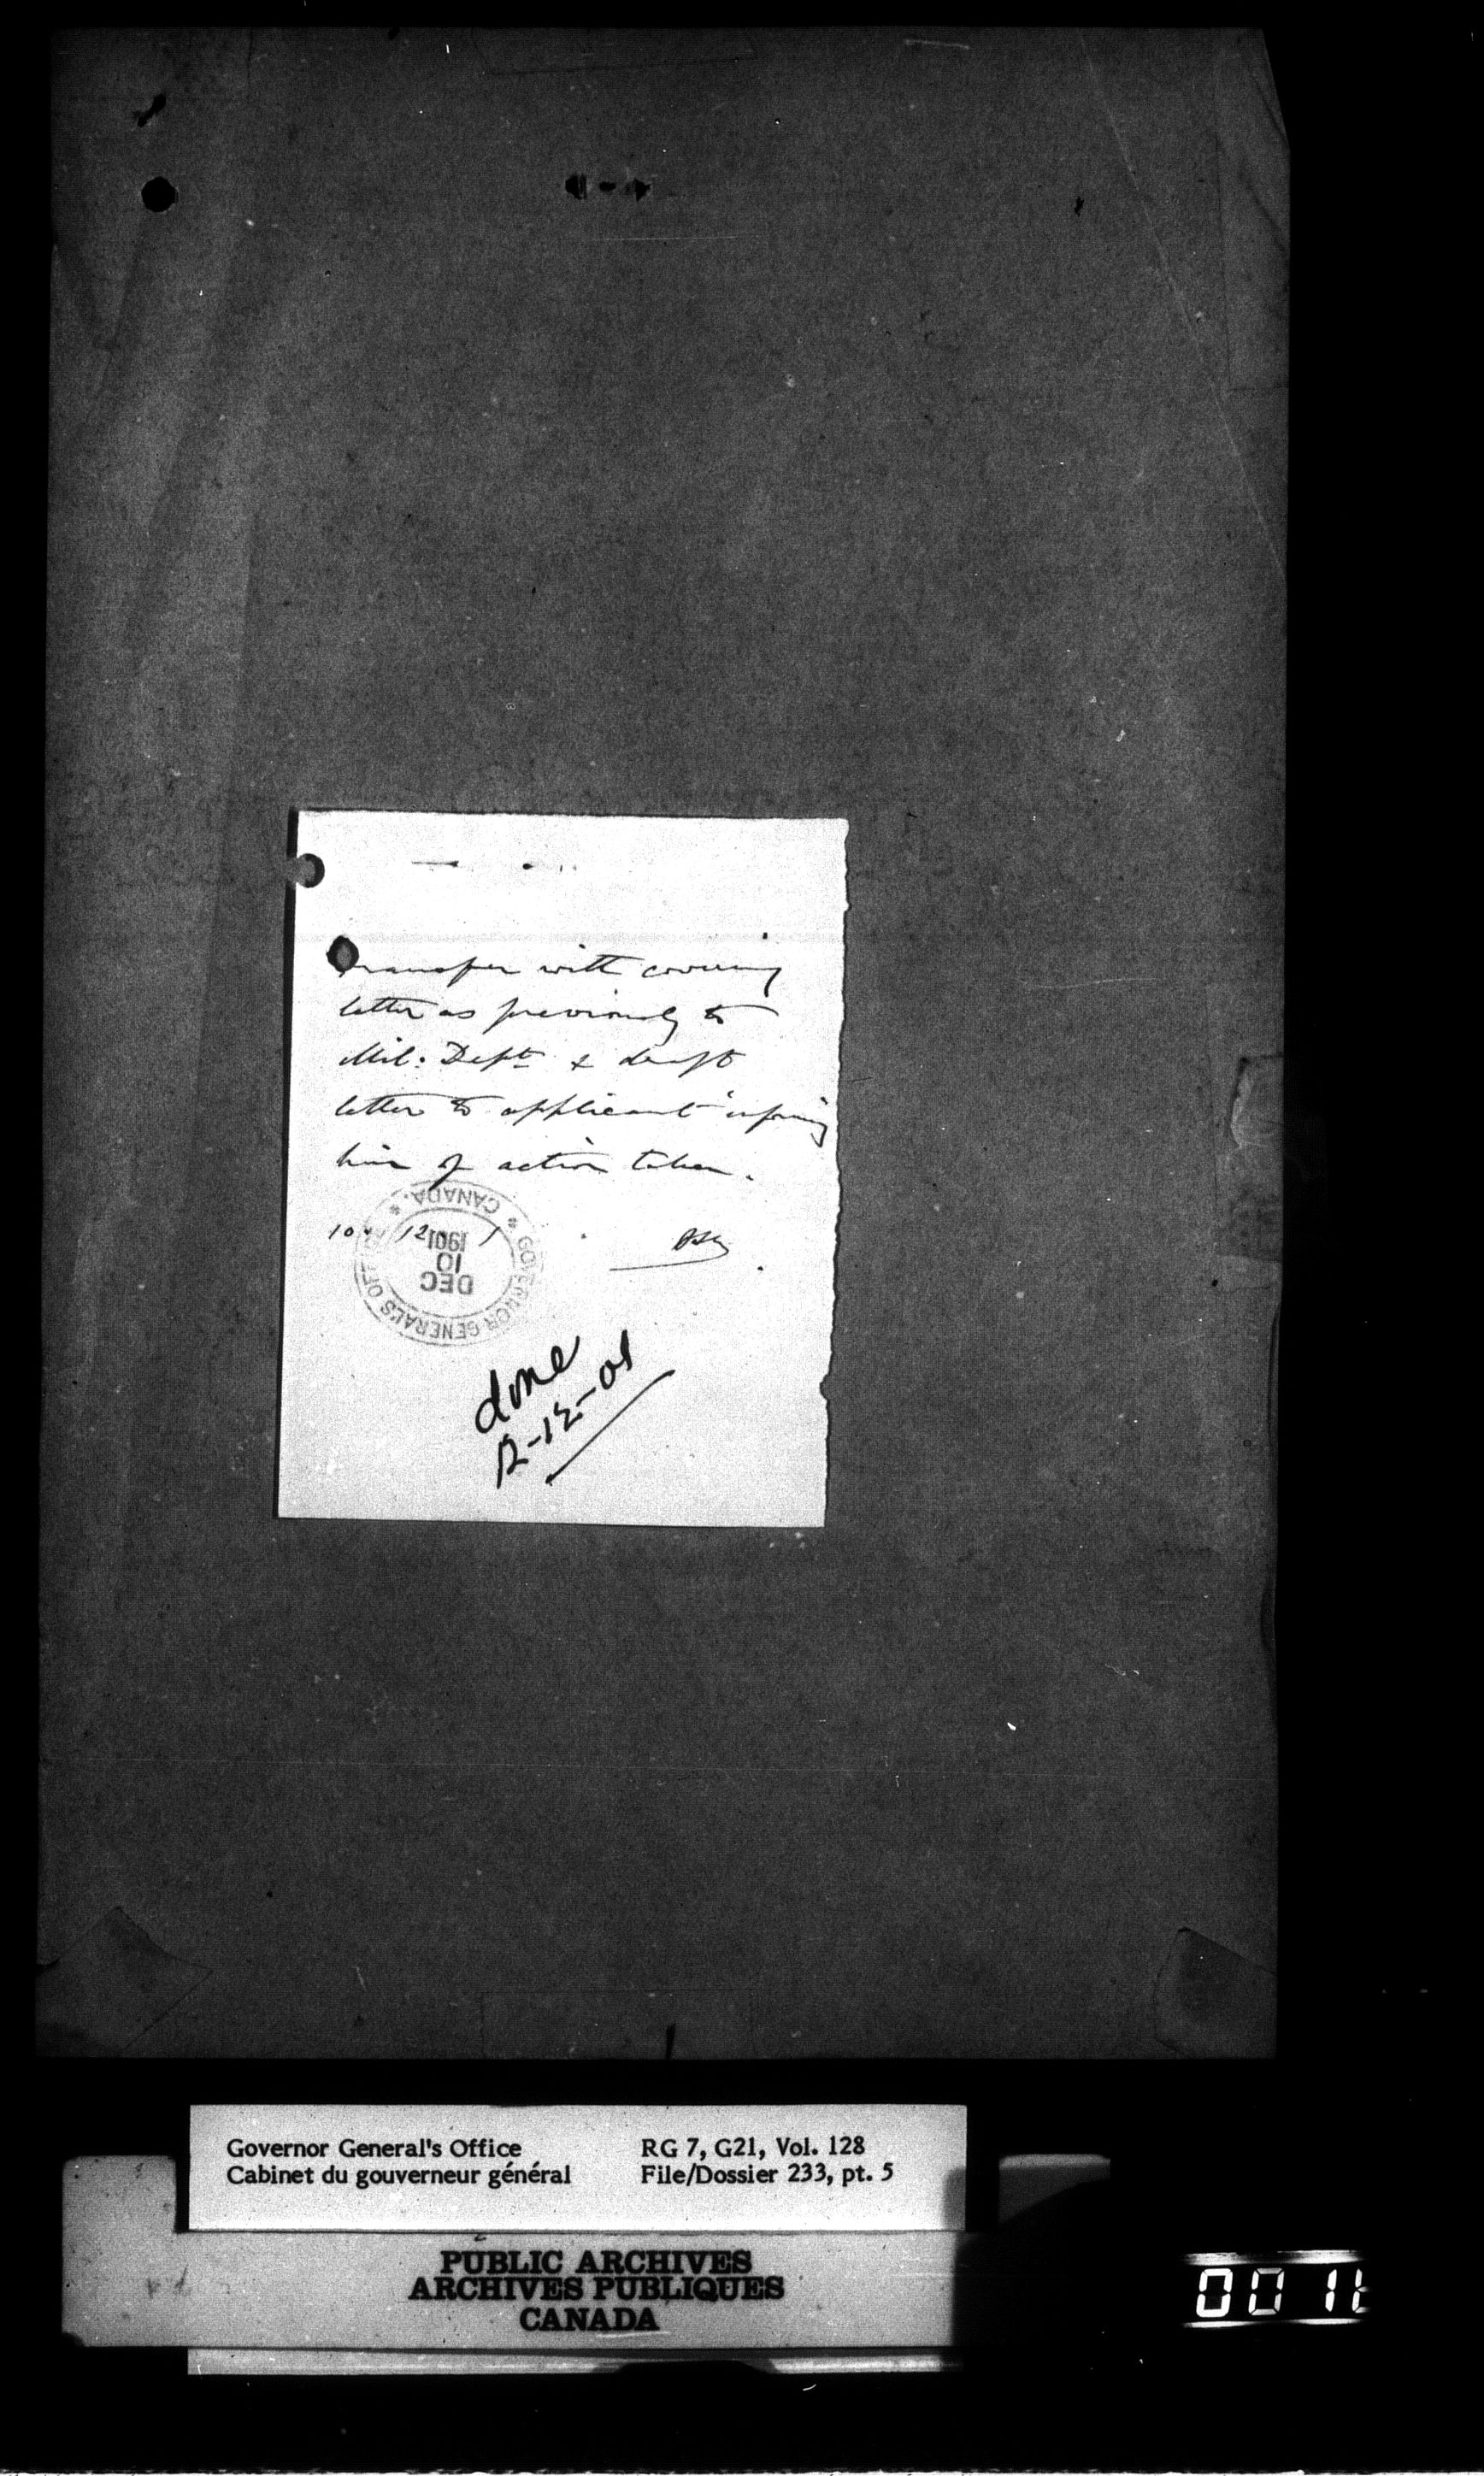 Transfer with covering
letter as previously to
Mil: Dept & draft
letter to applicant informing
him of action taken.
10. 12. 1
* CANADA. *
GOVERNOR GENERAL'S OFFICE
DEC
10
1901
done
12-12-01
Governor General's Office
Cabinet du gouverneur général
RG 7, G21, Vol. 128
File/Dossier 233, pt. 5
PUBLIC ARCHIVES
ARCHIVES PUBLIQUES
CANADA
00 11